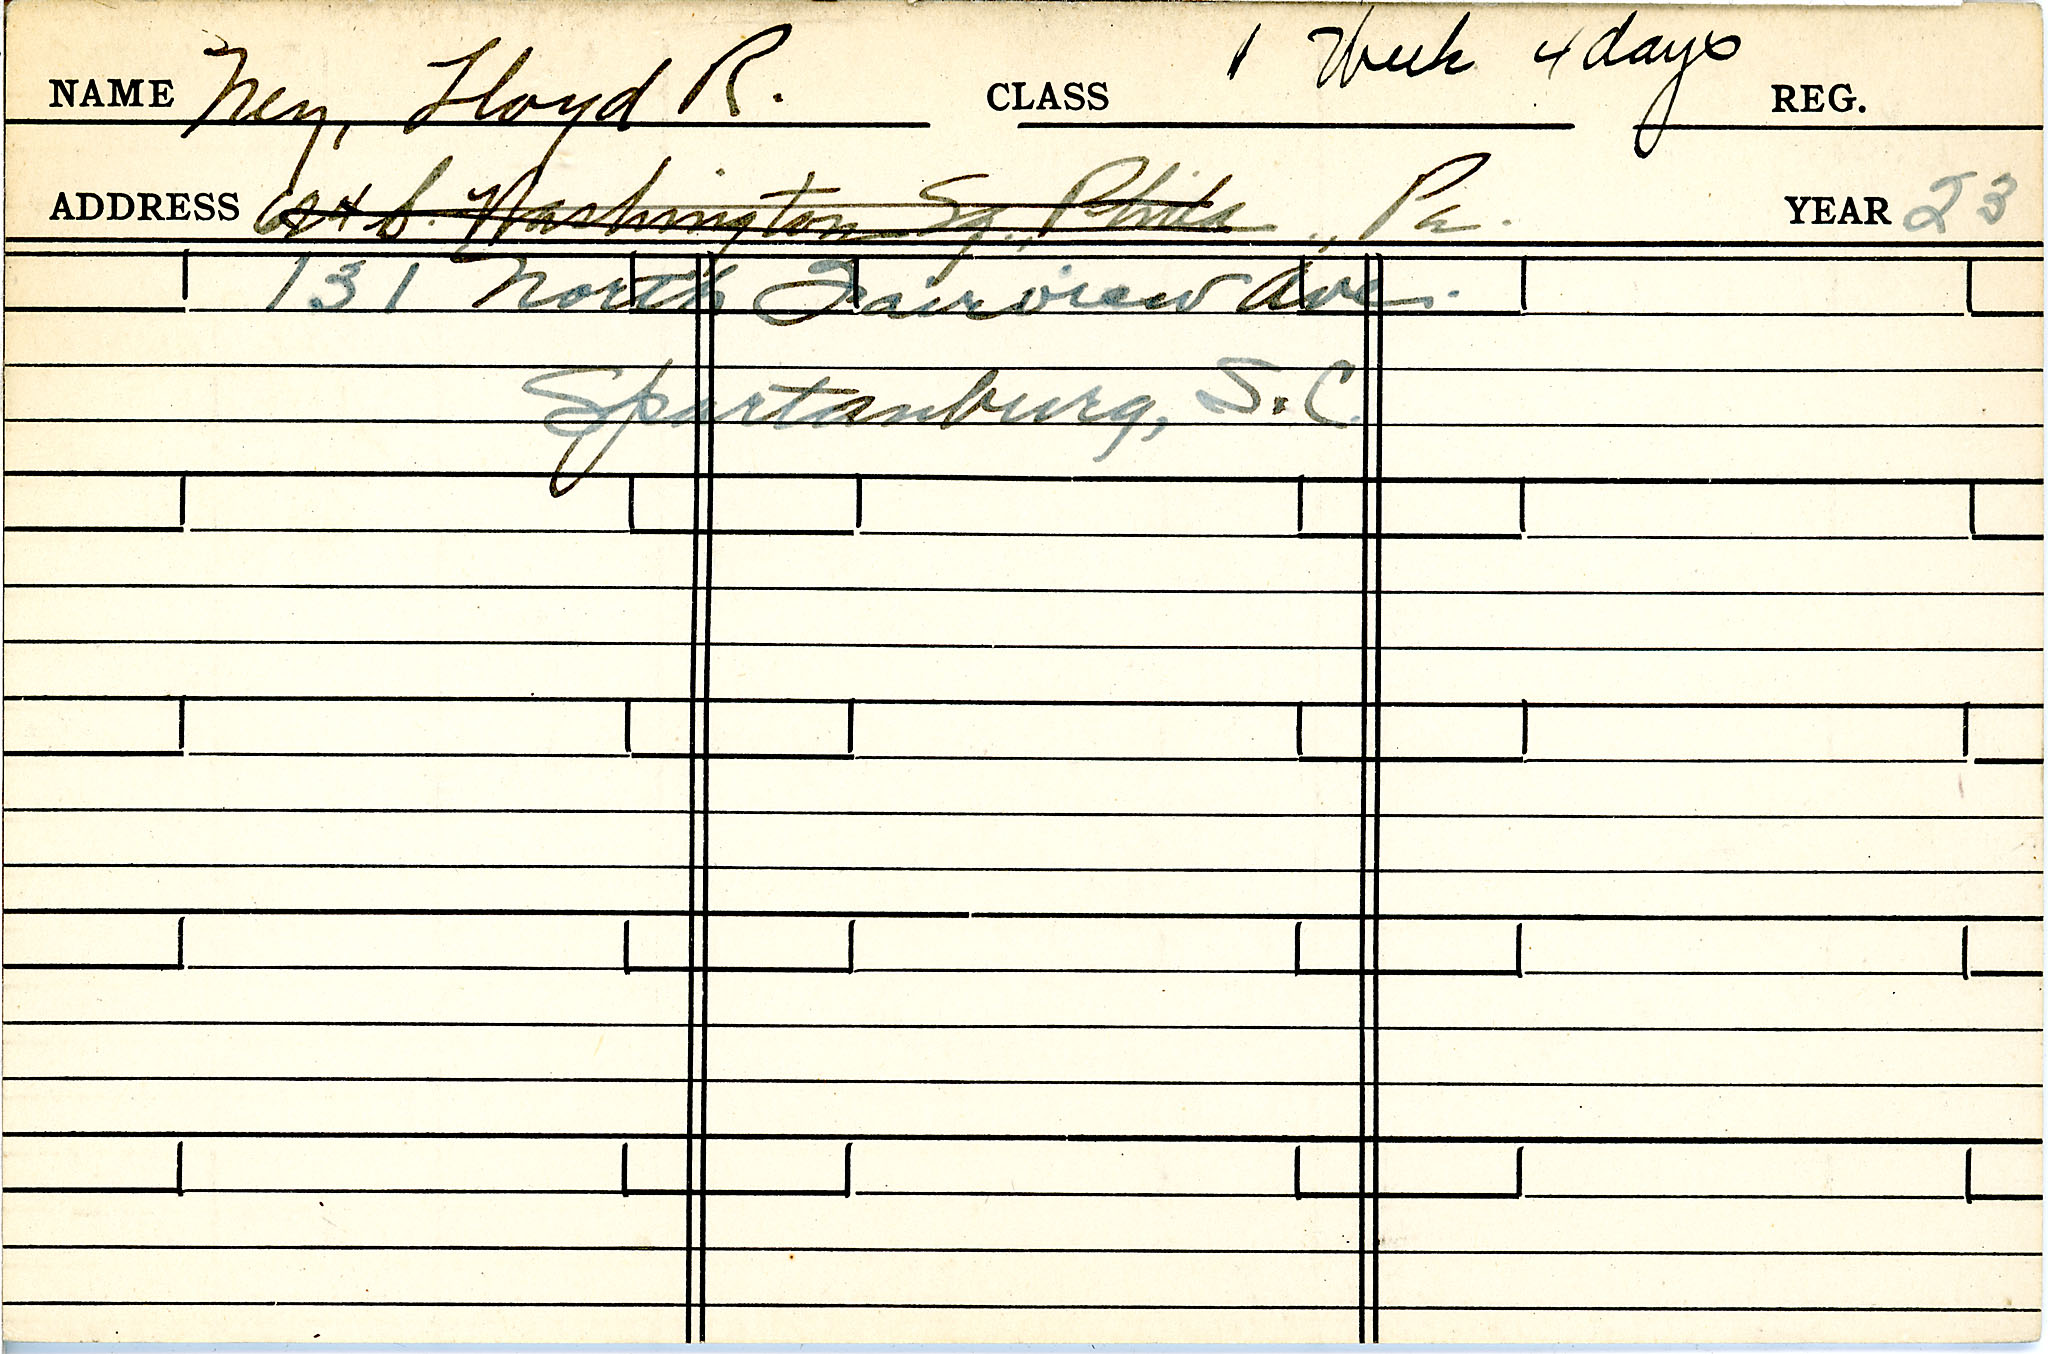 NAME Ney, Lloyd R. CLASS 1 Week 4 days REG.
ADDRESS S. Washington Sq., Phila., Pa. YEAR 23
131 North Fairview Ave.
Spartanburg, S.C.